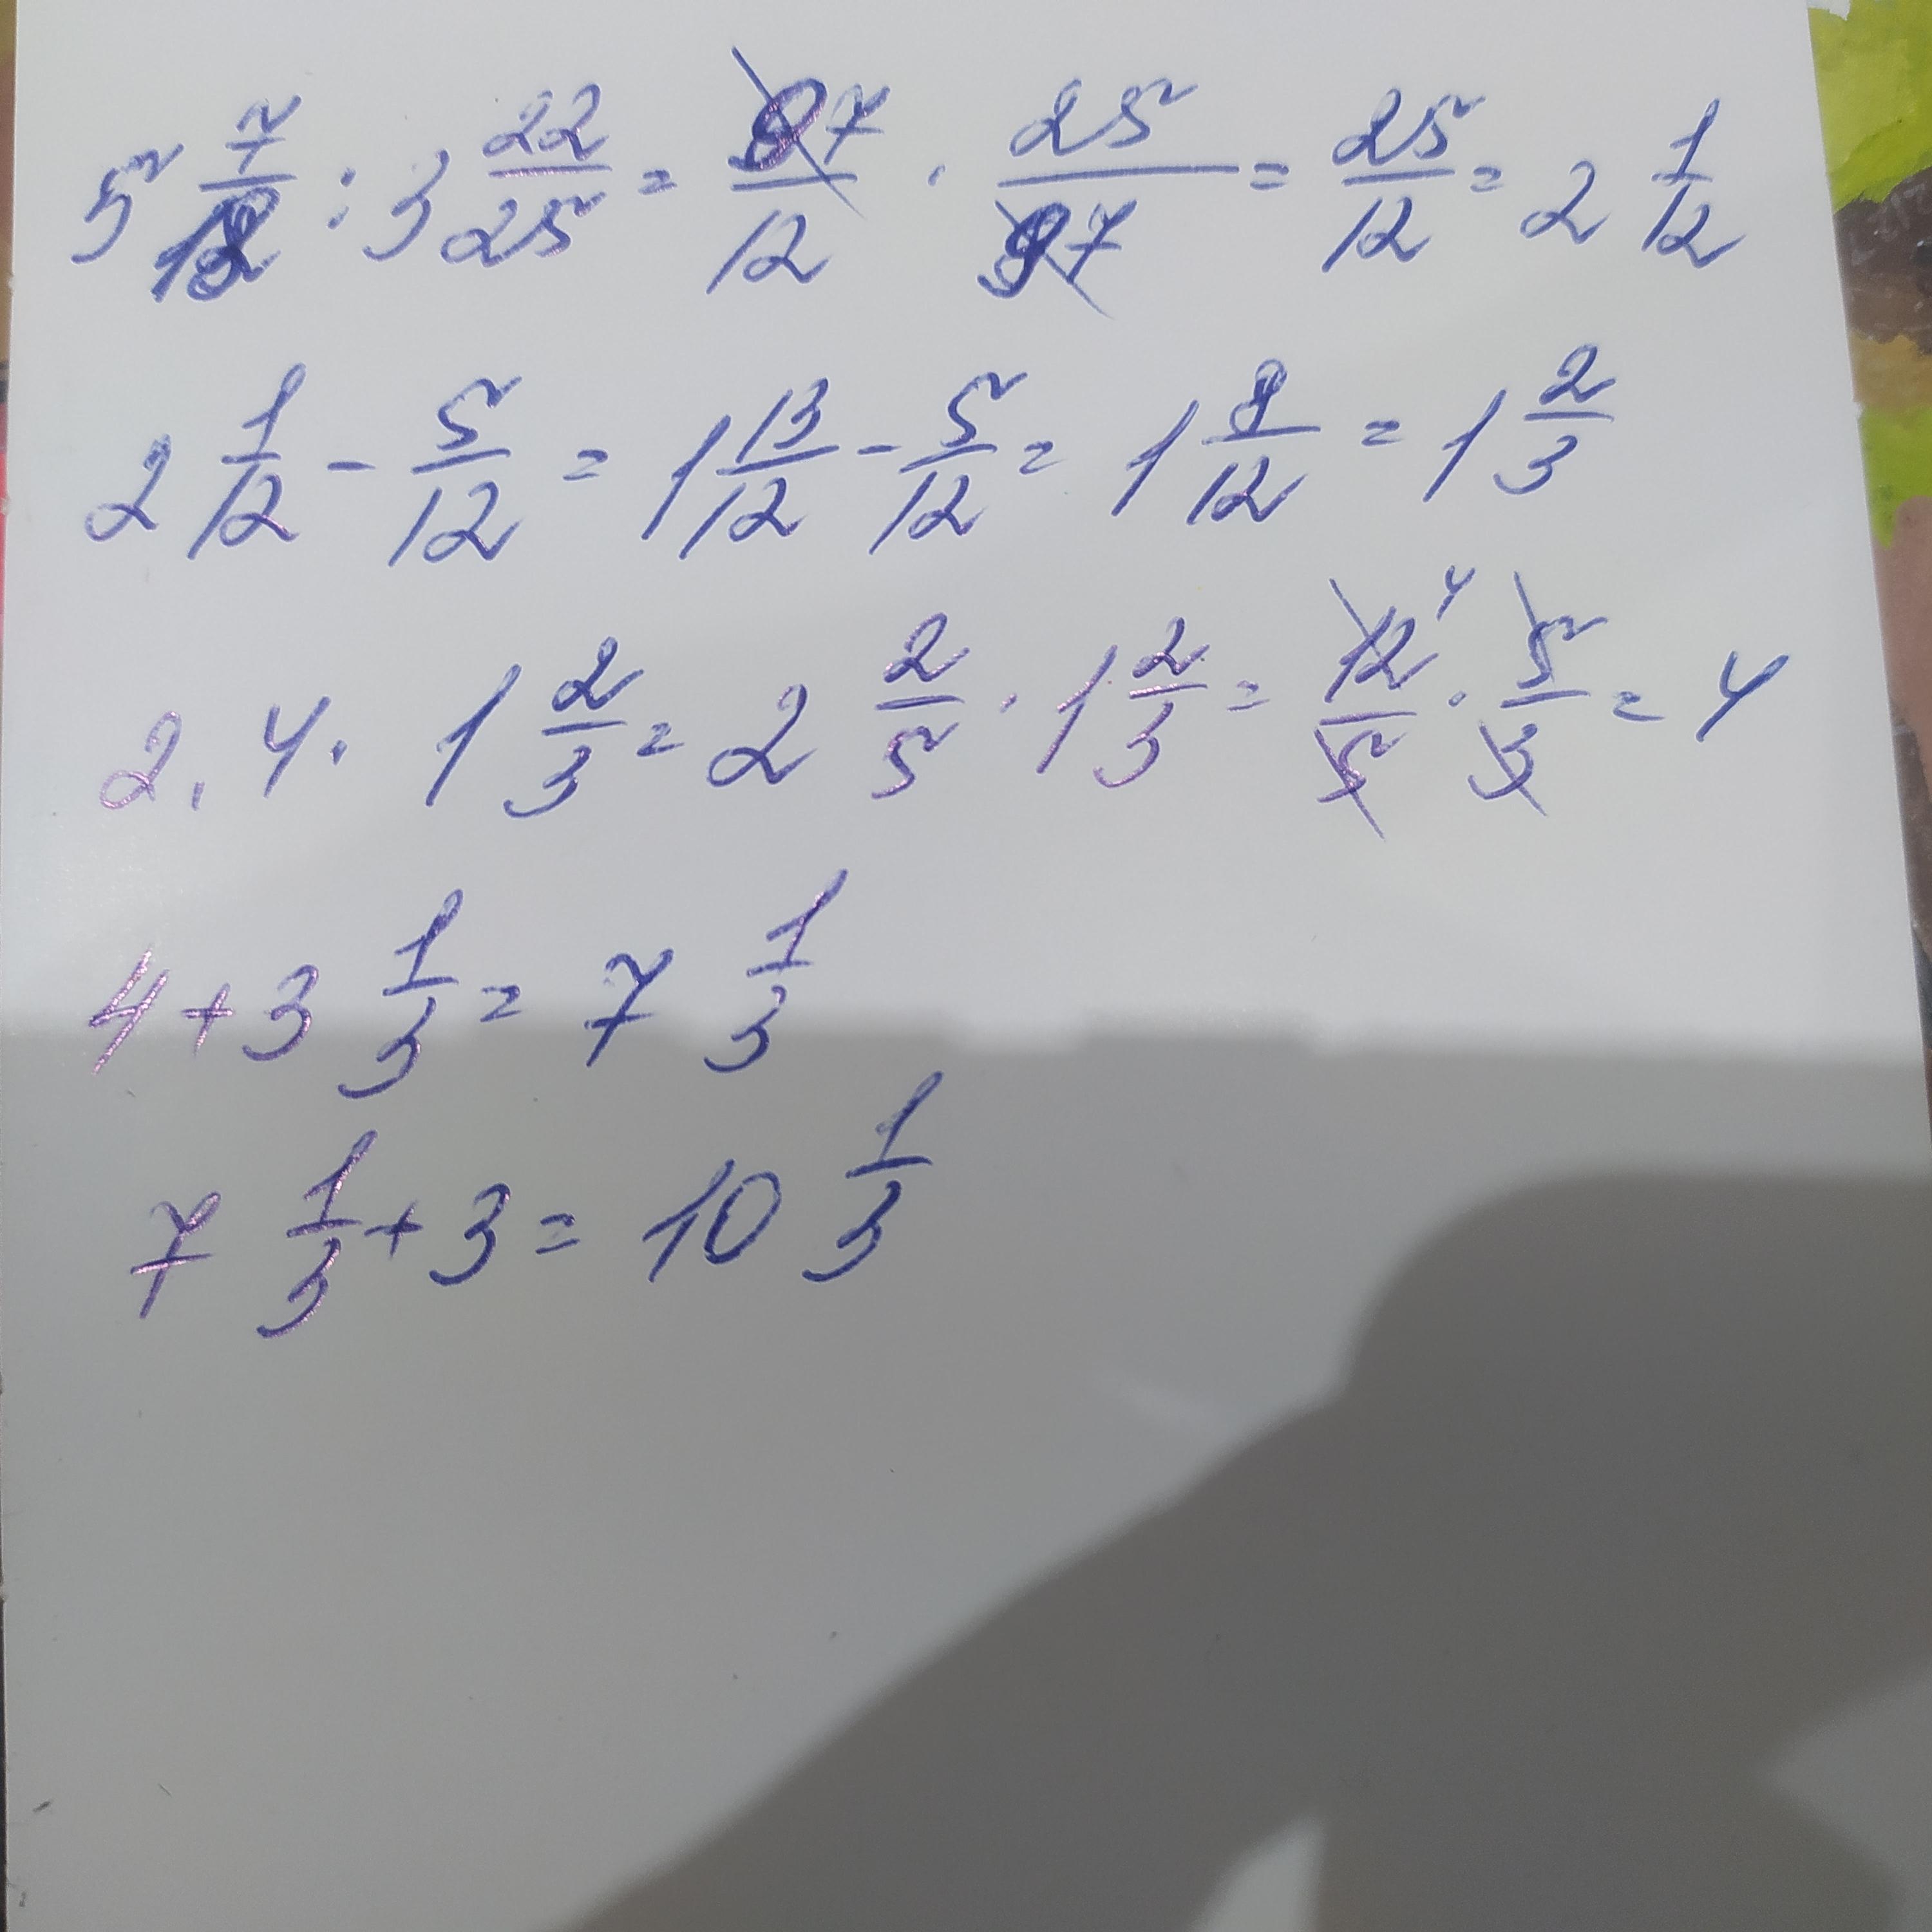 5 7/12 : 3 22/25 = 97/12 · 25/97 = 25/12 = 2 1/12
2 1/12 - 5/12 = 1 13/12 - 5/12 = 1 8/12 = 1 2/3
2,4 · 1 2/3 = 2 2/5 · 1 2/3 = 12 4/5 · 5/3 = 4
4 + 3 1/3 = 7 1/3
7 1/3 + 3 = 10 1/3